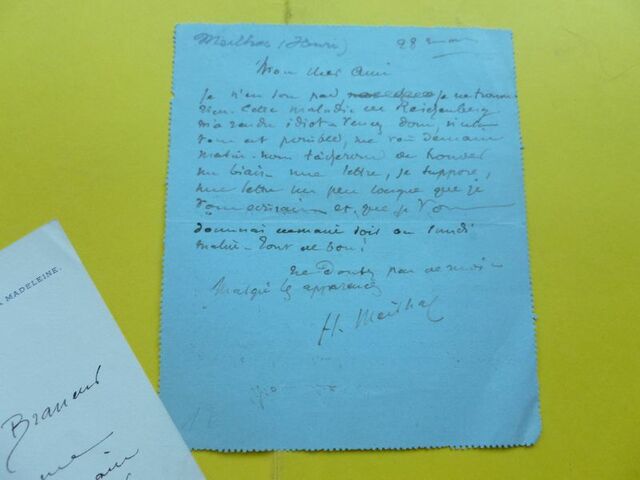 Meilhac (Henri) 28 mars
Mon cher ami
Je n'en sors pas je ne trouve
rien. Cette maladie de Reichenberg
m'a rendu idiot. Venez donc, si cela
vous est possible, me voir demain
matin. nous tâcherons de trouver
un biais. une lettre, je suppose,
une lettre un peu longue que je
vous écrirais et que je vous
donnerais demain soir ou lundi
matin. Tout de bon!
Ne doutez pas de moi
malgré les apparences
H. Meilhac
A MADELEINE.